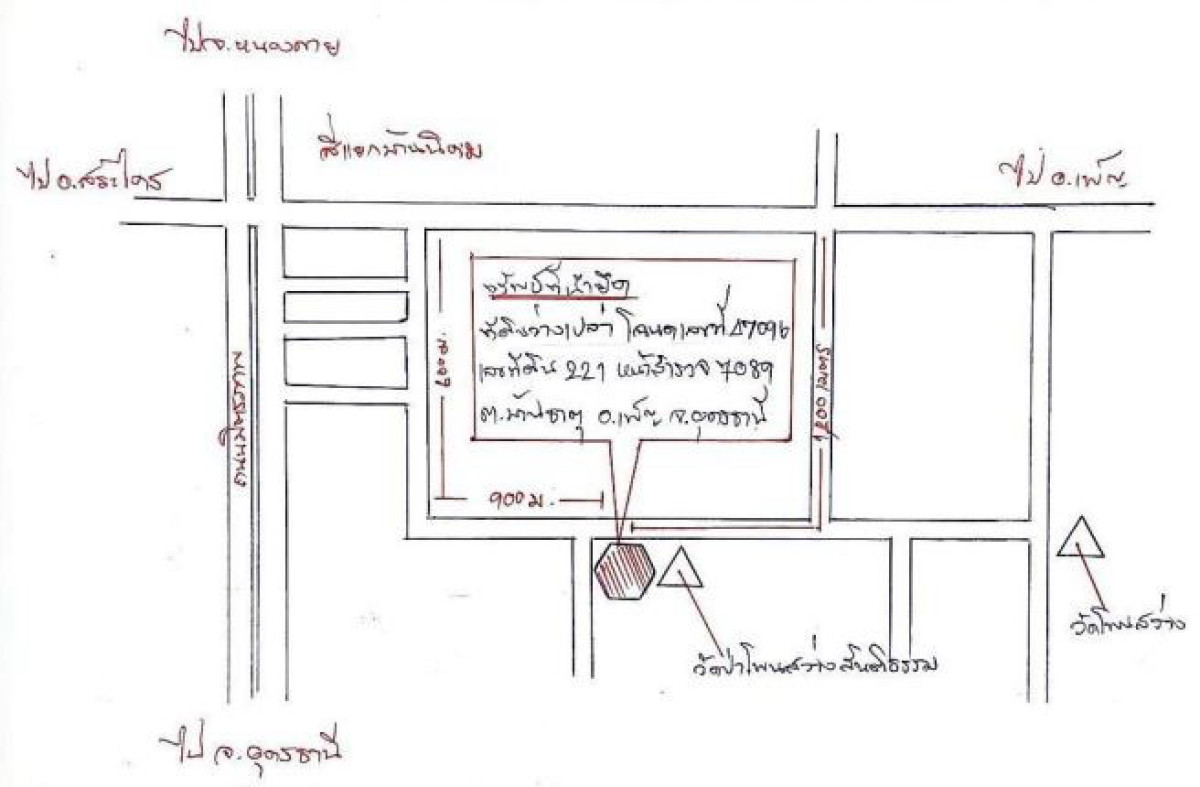 ไป จ.หนองคาย
สี่แยกบ้านนิคม
ไป อ.สระใคร
ไป อ.เพ็ญ
ทรัพย์ที่นำยึด
ที่ดินว่างเปล่า โฉนดเลขที่ 47096
เลขที่ดิน 221 หน้าสำรวจ 7089
ต.บ้านธาตุ อ.เพ็ญ จ.อุดรธานี
600 ม.
ถนนมิตรภาพ
900 ม.
วัดโพนสว่าง
วัดป่าโพนสว่างสันติธรรม
ไป จ.อุดรธานี